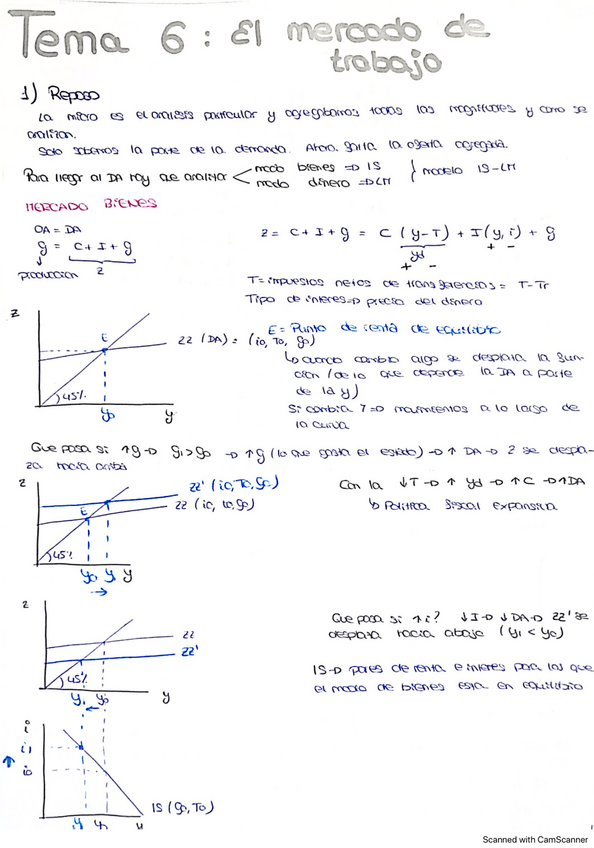 Tema 6: El mercado de
trabajo
1) Repaso
La micro es el analisis particular y agregábamos todas las magnitudes y como se
analizan.
Solo sabemos la parte de la demanda. Ahora falta la oferta agregada.
Para llegar al DA hay que analizar
mcdo bienes => IS
mcdo dinero => LM
modelo IS-LM
MERCADO BIENES
OA = DA
y = C + I + g
producción
z
z = C + I + g = C (y-T) + I(y, i) + g
yd
+ -
+ -
T = impuestos netos de transferencias = T - Tr
Tipo de interes => precio del dinero
z
E
ZZ (DA) = (io, To, go)
45%
yo
y
E = Punto de renta de equilibrio
↳ cuando cambio algo se desplaza la fun-
cion (de lo que depende la DA a parte
de la y)
Si cambia Y => movimientos a lo largo de
la curva
Que pasa si ↑g → g1 > go → ↑g (lo que gasta el estado) → ↑ DA → z se despla-
za hacia arriba
z
ZZ' (io, To, go)
E
ZZ (io, to, go)
45%
yo y1 y
→
Con la ↓T → ↑ yd → ↑C → ↑DA
↳ Politica fiscal expansiva
z
ZZ
ZZ'
45%
y1 yo
y
←
Que pasa si ↑i? ↓I → ↓DA → ZZ' se
desplaza hacia abajo (y1 < yo)
IS → pares de renta e interes para los que
el mcdo de bienes esta en equilibrio
IS (go, To)
Scanned with CamScanner